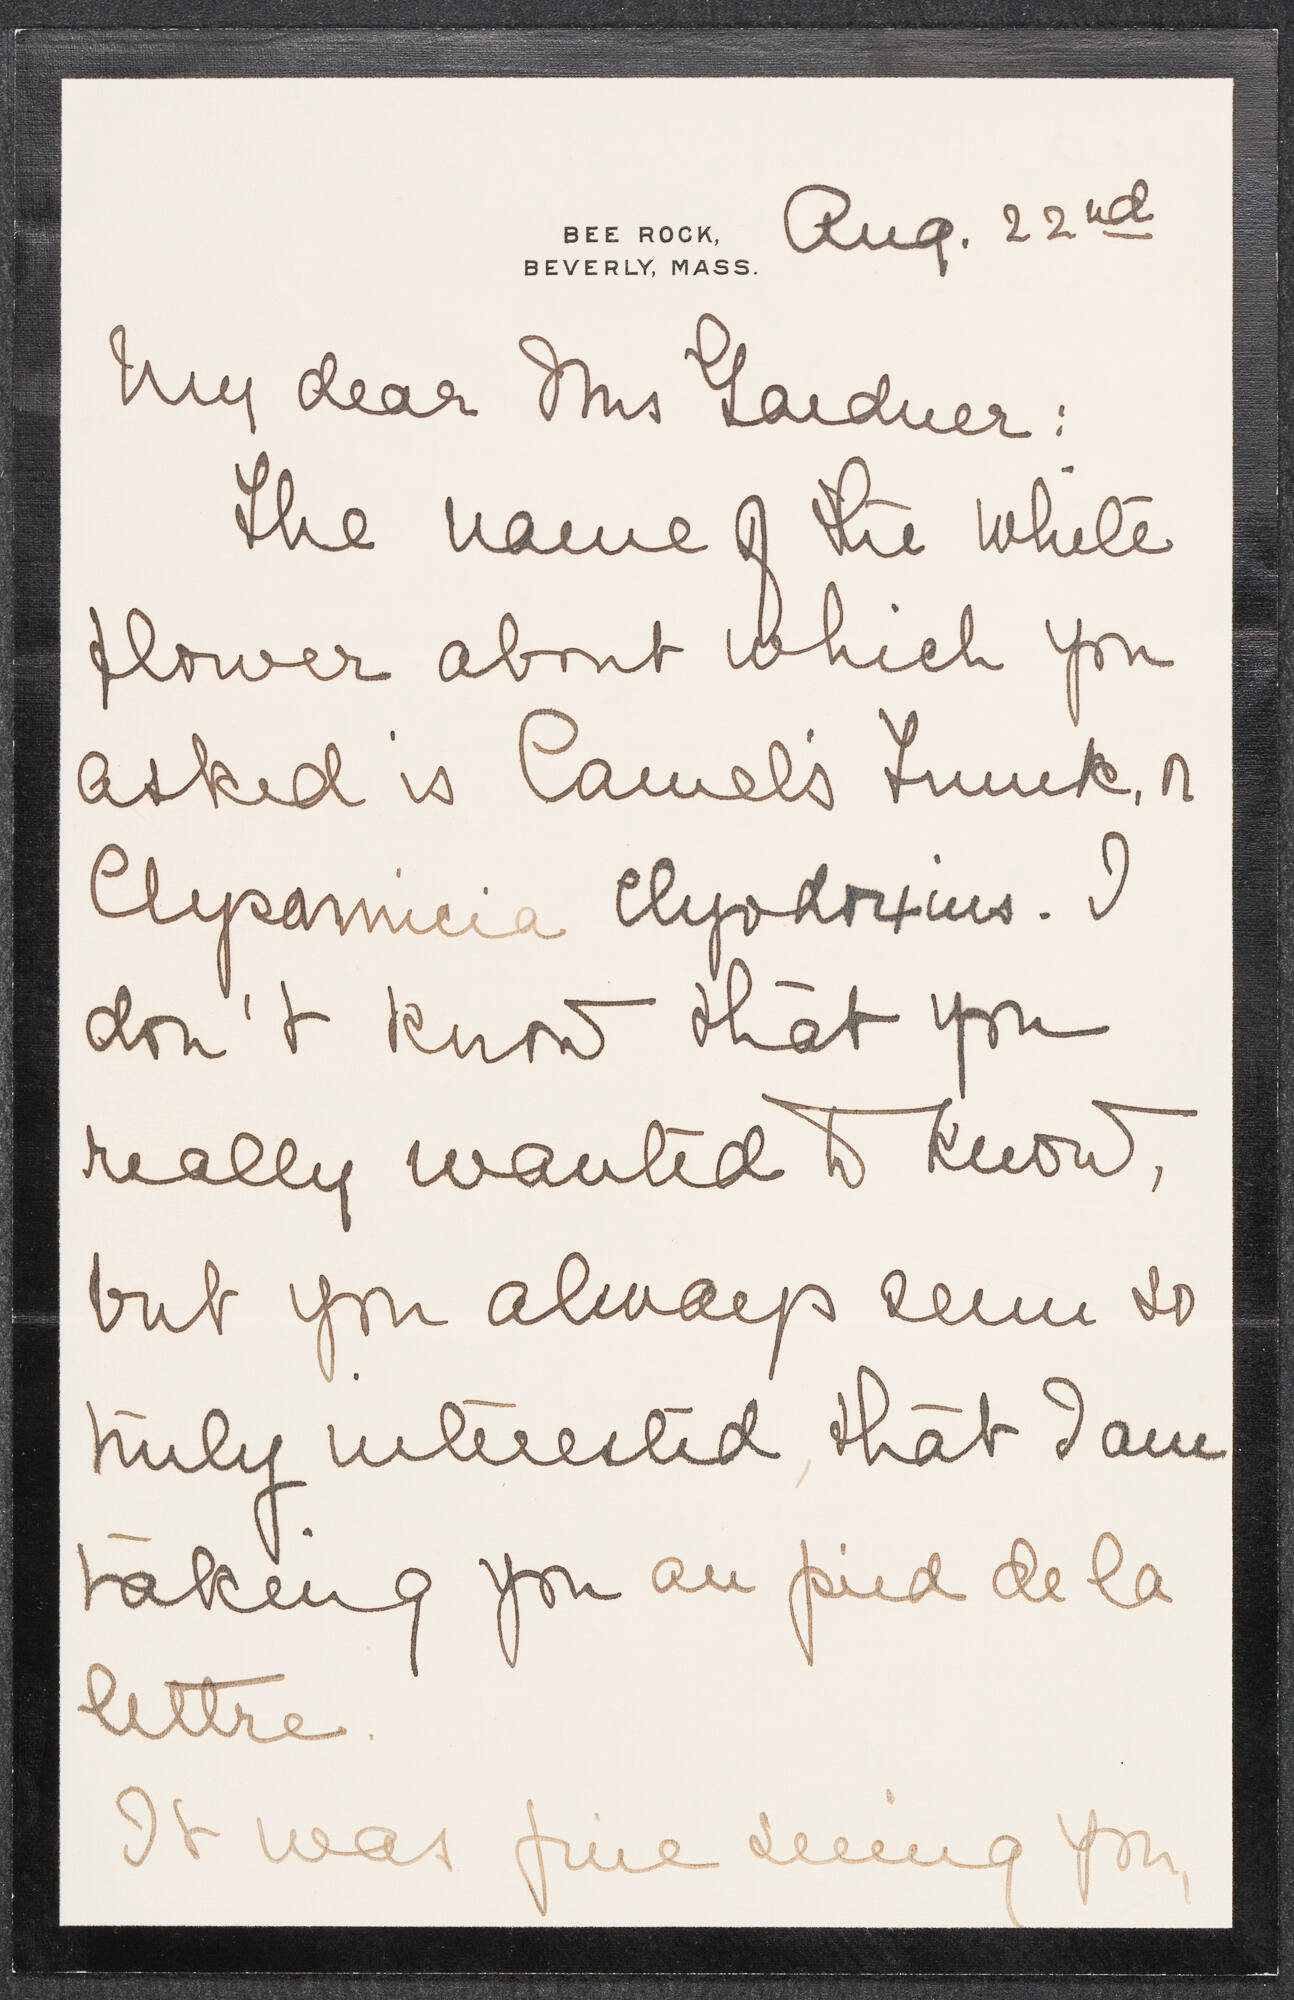 BEE ROCK,
BEVERLY, MASS.
Aug. 22nd
My dear Mrs Gardner:
The name of the white
flower about which you
asked is Camel's Trunk, or
Clypsomicia clyodoxius. I
don't know that you
really wanted to know,
but you always seem so
truly interested, that I am
taking you au pied de la
lettre.
It was fine seeing you,